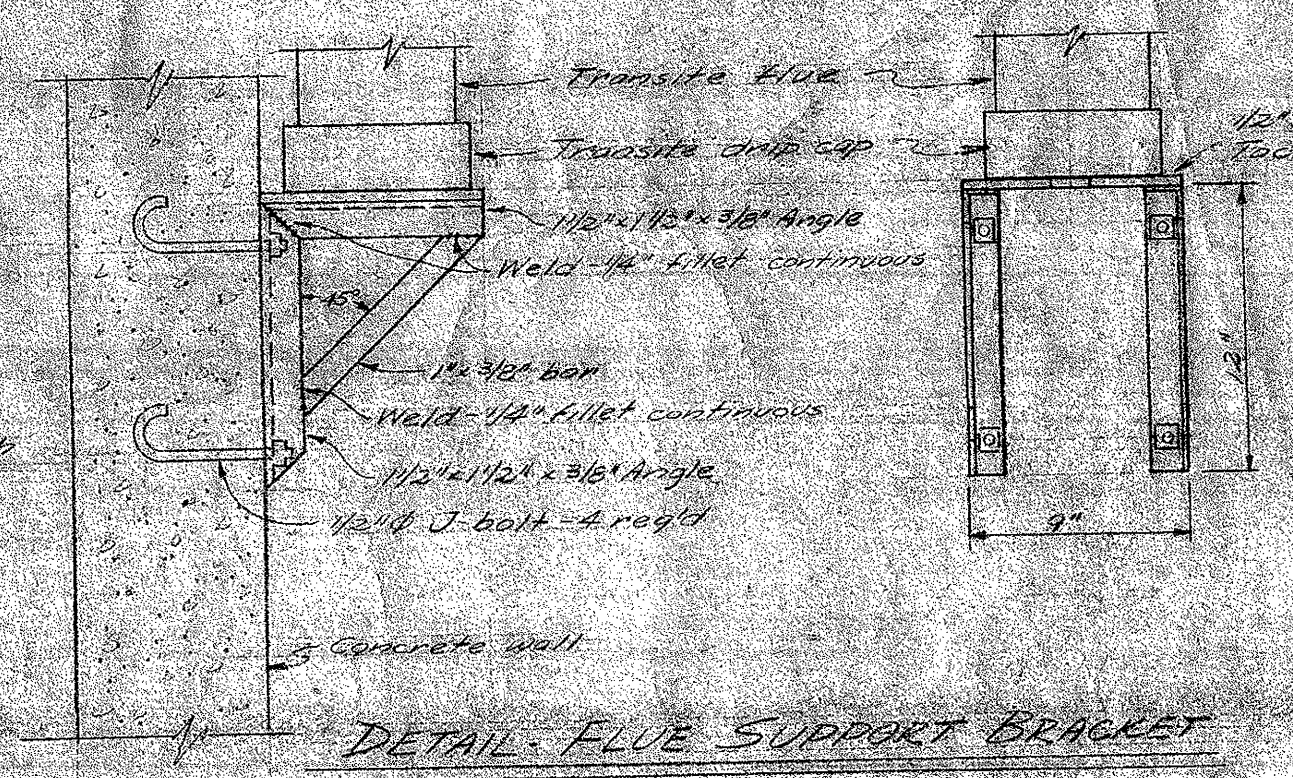 Transite flue
Transite drip cap
1/2"
1 1/2" x 1 1/2" x 3/8" Angle
Weld - 1/4" fillet continuous
45°
1" x 3/8" bar
12"
Weld - 1/4" fillet continuous
1 1/2" x 1 1/2" x 3/8" Angle
1/2" ϕ J-bolt - 4 req'd
9"
Concrete wall
DETAIL - FLUE SUPPORT BRACKET